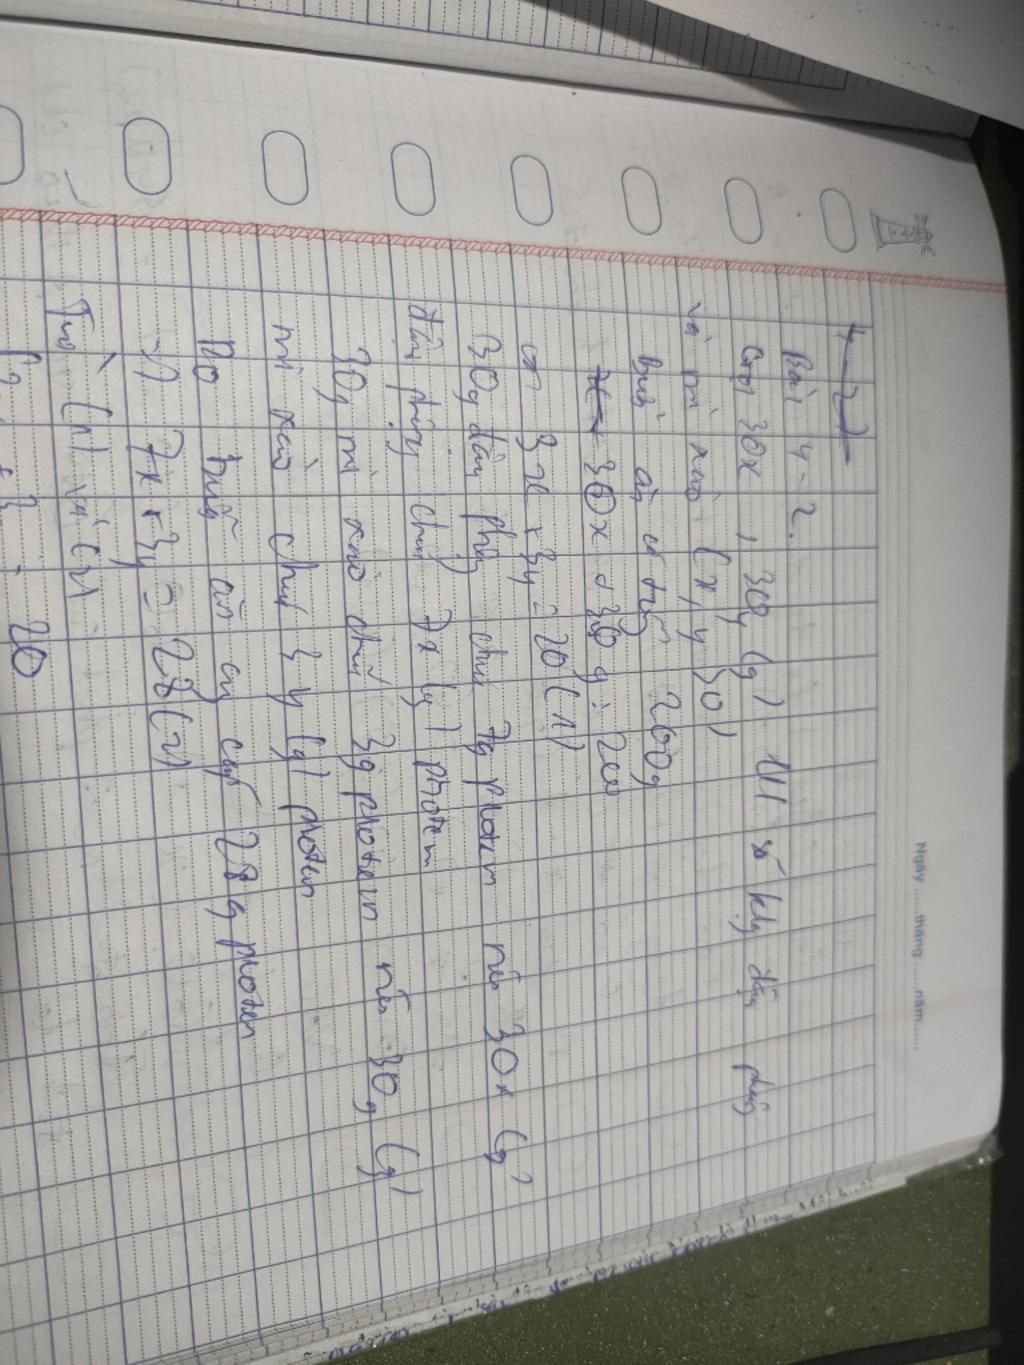 Ngày ...... tháng ...... năm......
Bài 4-2.
Gọi 30x, 30y (g) là số klg đậu phộng
và mì xào (x, y > 0)
buổi ăn có tổng 200g
30x + 30y = 200
3x + 3y = 20 (1)
30g đậu phộng chứa 7g protein nên 30x (g)
đậu phộng chứa 7x (g) protein
30g mì xào chứa 3g protein nên 30y (g)
mì xào chứa 3y (g) protein
Do buổi ăn cung cấp 28g protein
=> 7x + 3y = 28 (2)
Từ (1) và (2)
= 20